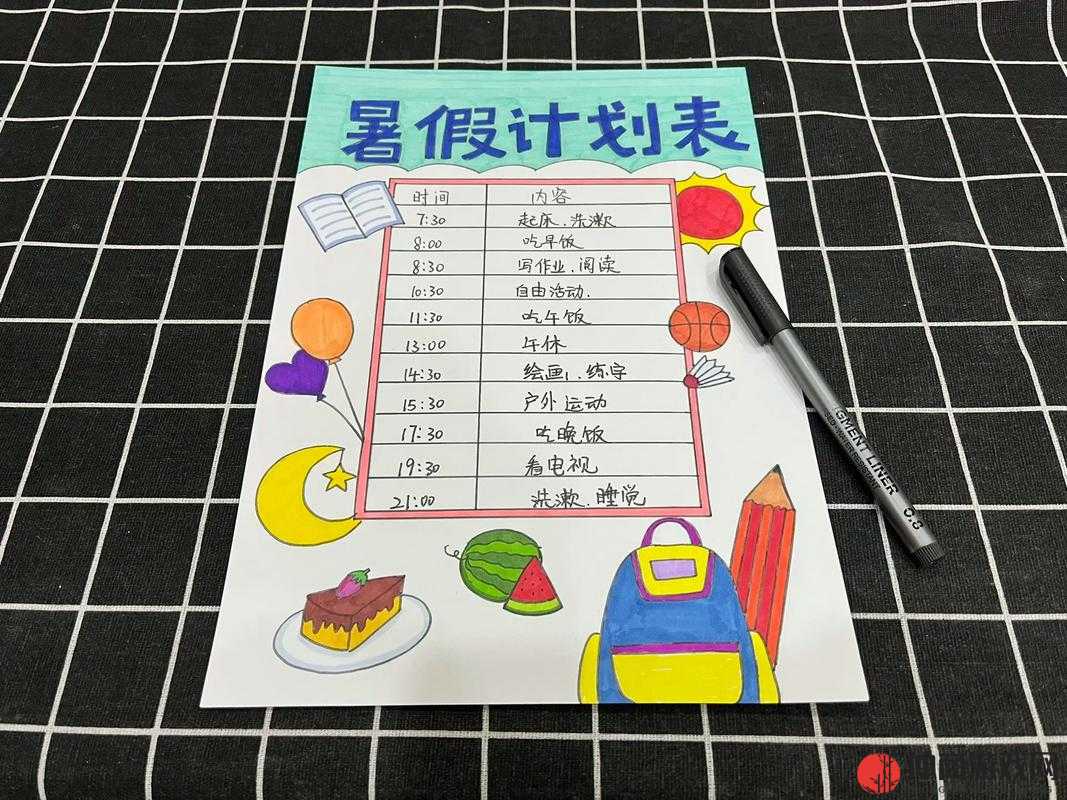 暑假计划表
时间 内容
7:30 起床、洗漱
8:00 吃早饭
8:30 写作业、阅读
10:30 自由活动、
11:30 吃午饭
13:00 午休
14:30 绘画、练字
15:30 户外运动
17:30 吃晚饭
19:30 看电视
21:00 洗漱、睡觉
GMENT LINER 0.8